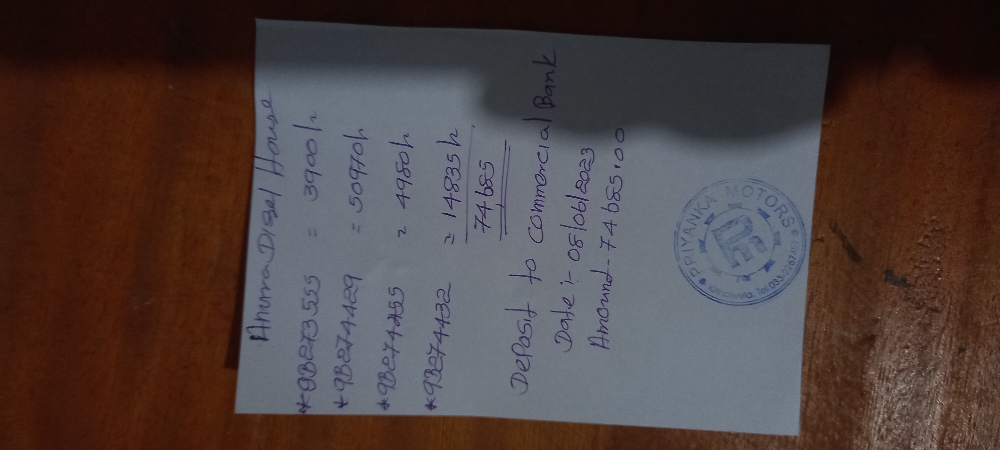 Disel House
*9B273555 = 3900/=
*9B274429 = 50970/=
*9B274255 = 4980/=
*9B274432 = 14835/=
74685
Deposit to commercial Bank
Date :- 08/06/2023
Amound - 74685.00
PRIYANKA MOTORS
Tel